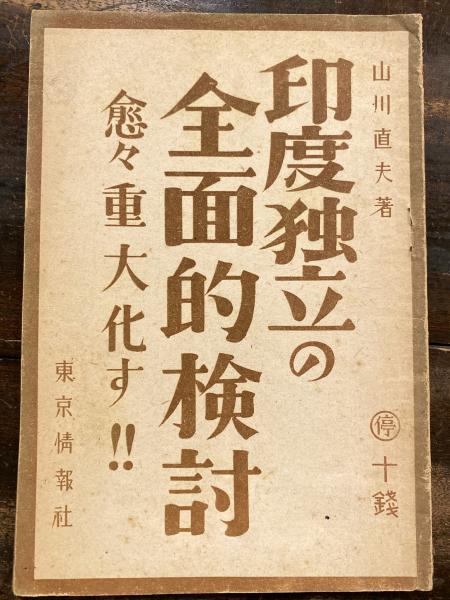 山川直夫著
印度独立の
全面的検討
愈々重大化す!!
停 十錢
東京情報社